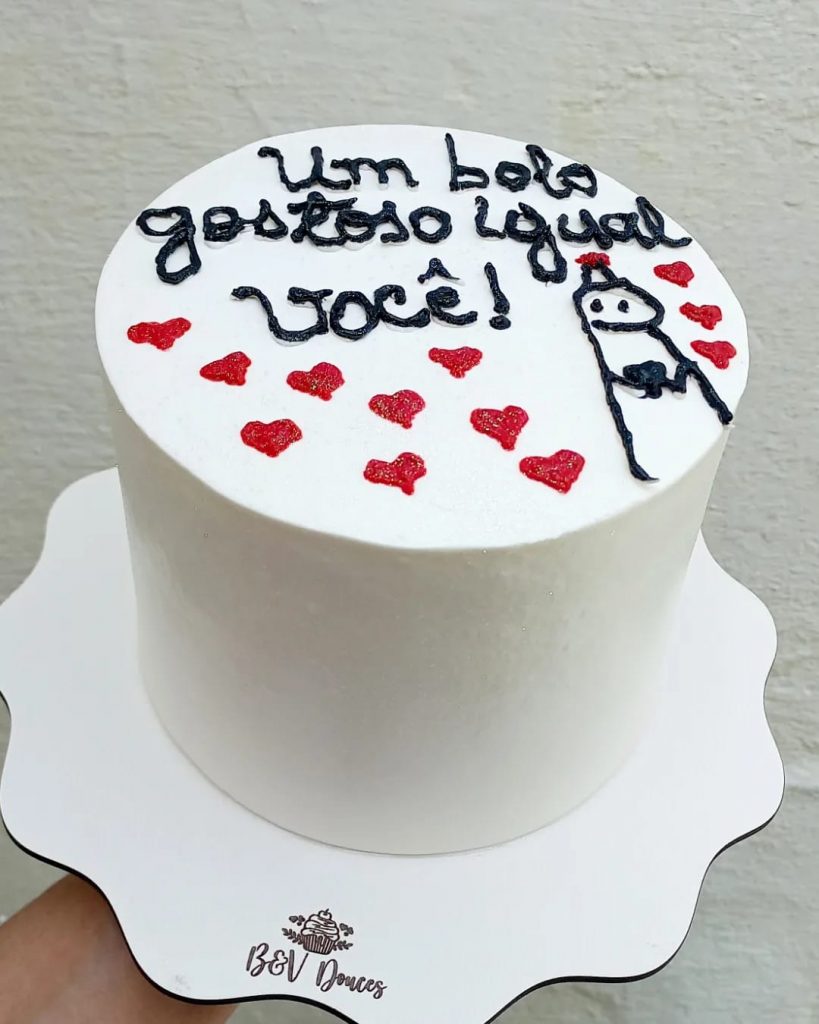 Um bolo
gostoso igual
você!
B&V Douces